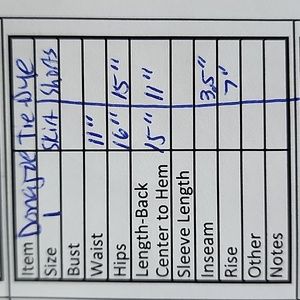 Item Tie Dye
Size 1 Skirt Shorts
Bust
Waist 11"
Hips 16" 15"
Length-Back
Center to Hem 15" 11"
Sleeve Length
Inseam 3.5"
Rise 7"
Other
Notes